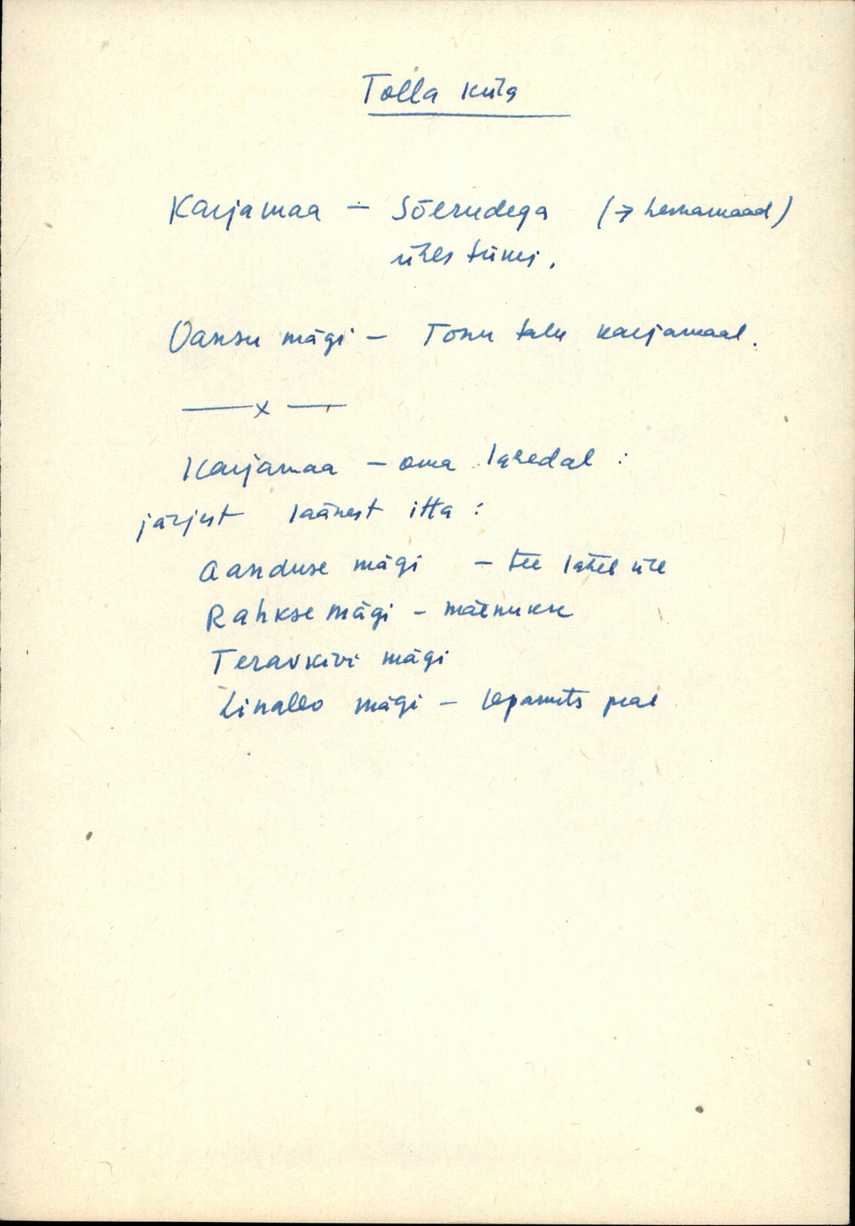 Tolla küla
Karjamaa – Sõerudega (→ heinamaad)
ühes tümi.
Oansu mägi – Tonu talu karjamaal.
—x—
Karjamaa – oma lahedal :
järjest läänest itta :
Aanduse mägi – tee läheb üle
Rahkse mägi – männukse
Teravkivi mägi
Linaleo mägi – lepamets peal